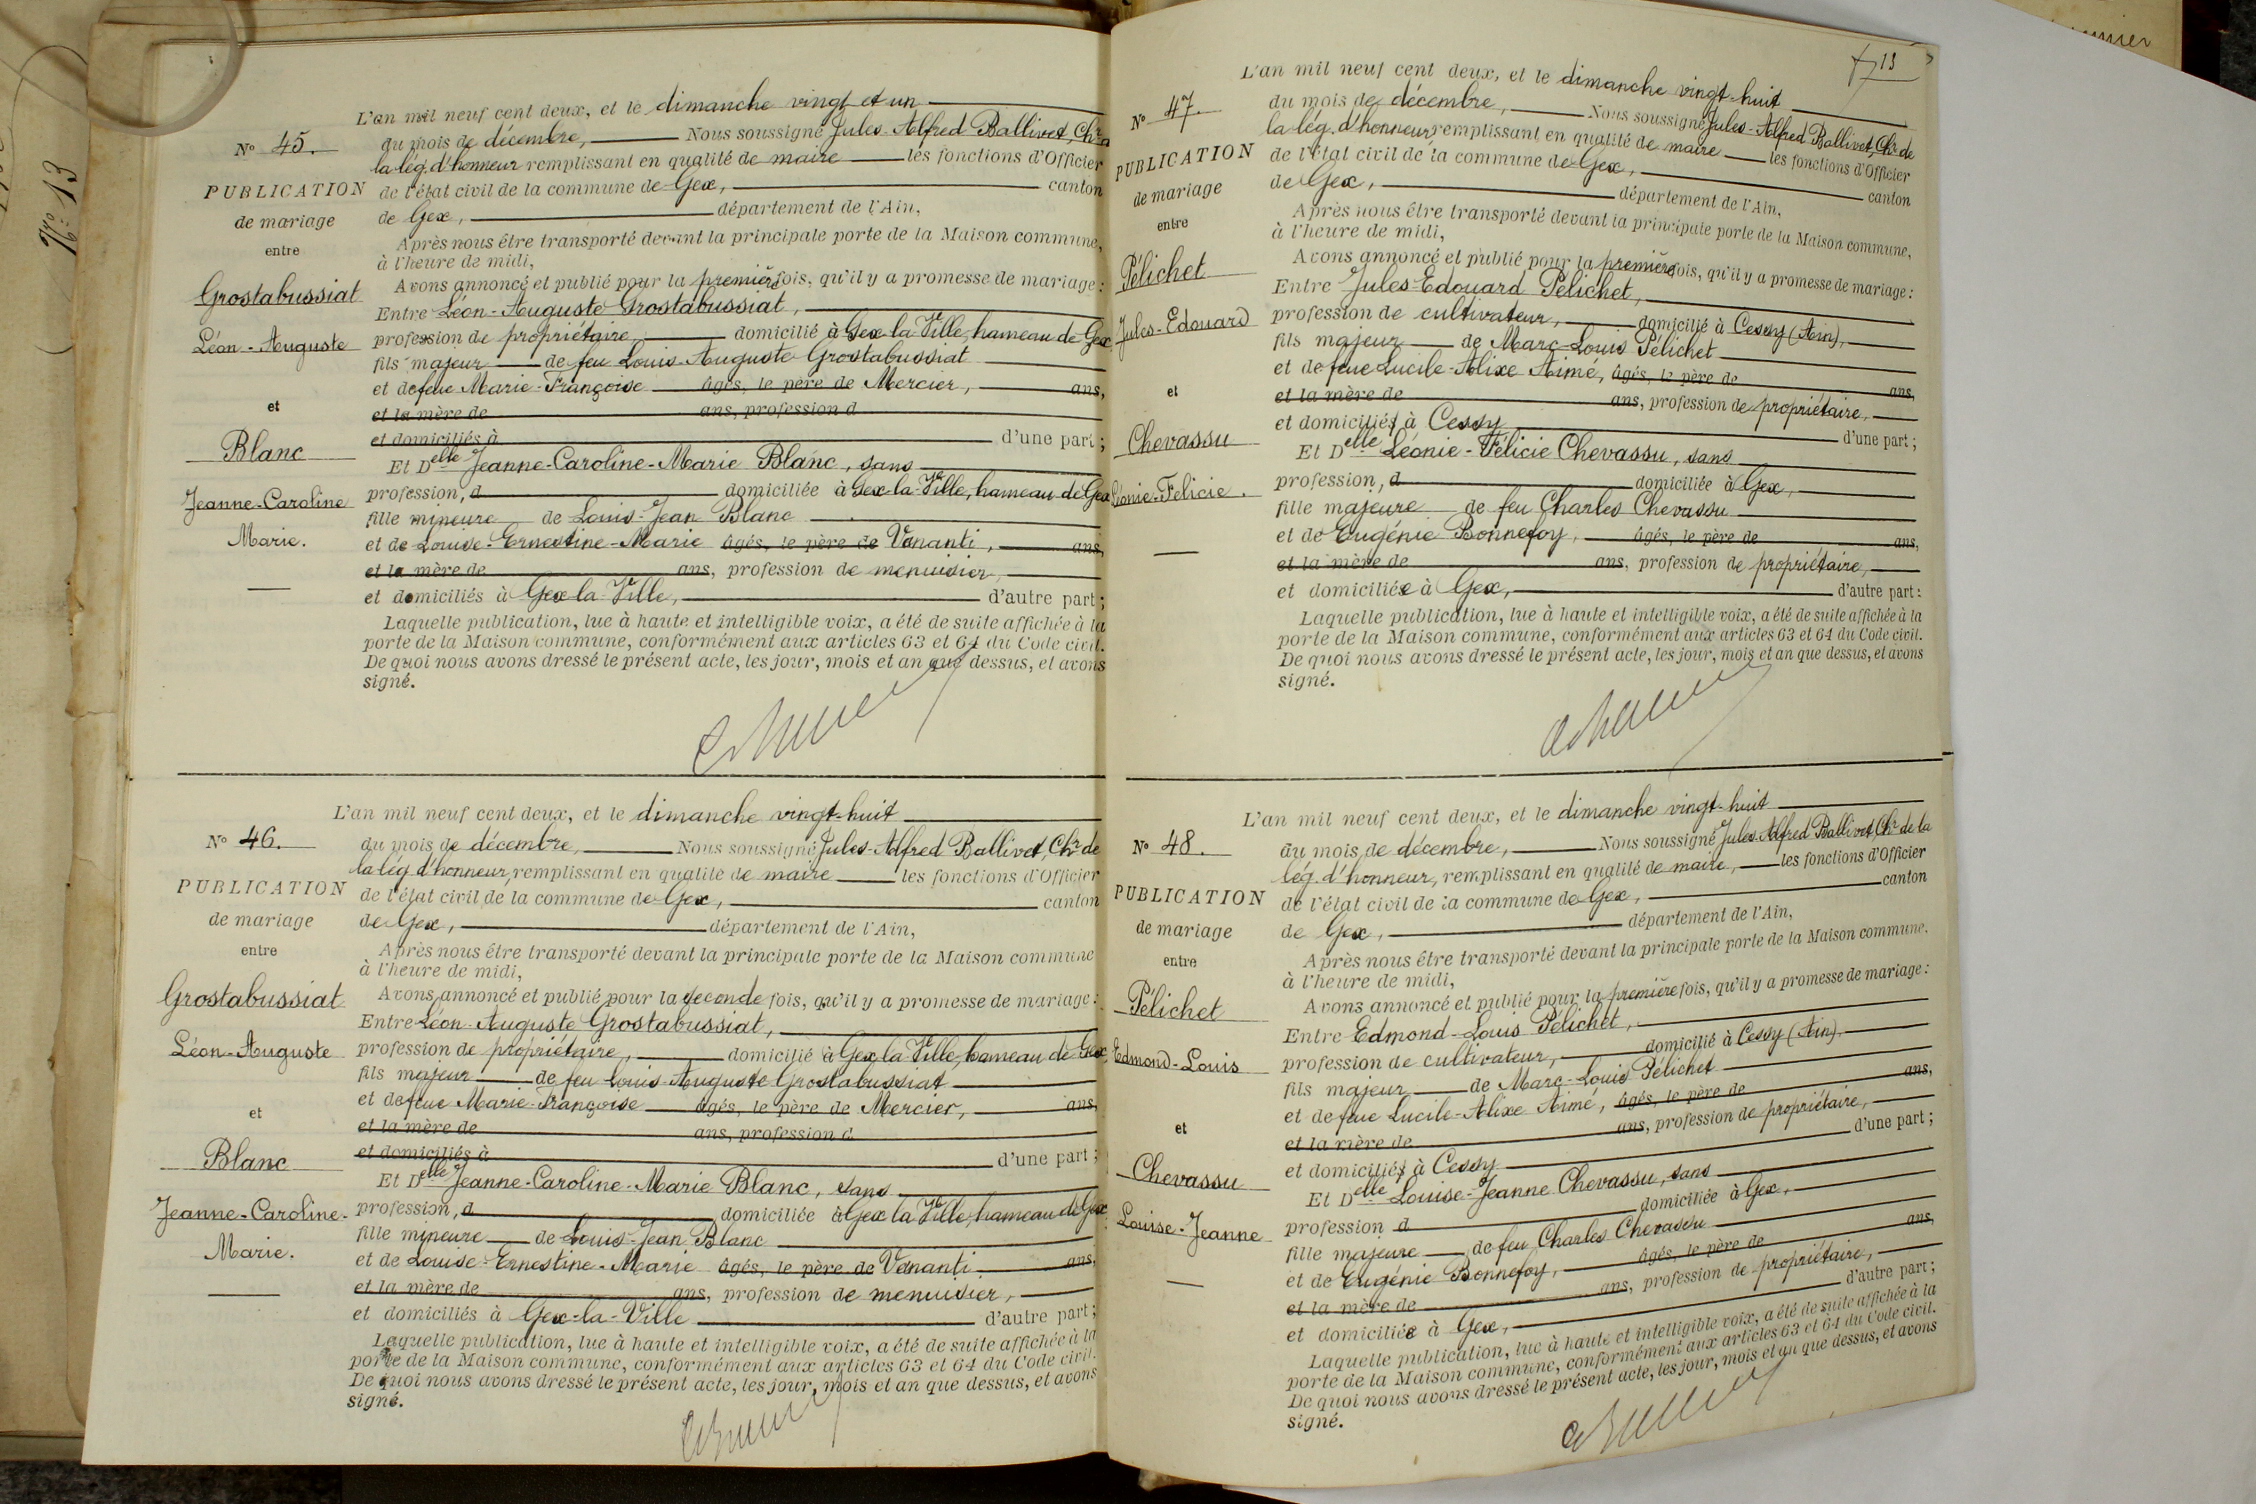 N° 13
L'an mil neuf cent deux, et le dimanche vingt et un
N° 45.
du mois de décembre, Nous soussigné Jules-Alfred Ballivet, Chr
la lég. d'honneur remplissant en qualité de maire les fonctions d'Officier
PUBLICATION
de l'état civil de la commune de Gex, canton
de mariage
de Gex, département de l'Ain,
entre
Après nous être transporté devant la principale porte de la Maison commune,
à l'heure de midi,
Avons annoncé et publié pour la première fois, qu'il y a promesse de mariage :
Grostabussiat
Entre Léon-Auguste Grostabussiat,
Léon-Auguste
profession de propriétaire domicilié à Gex-la-Ville, hameau de Gex
fils majeur de feu Louis-Auguste Grostabussiat
et de feue Marie-Françoise âgés, le père de Mercier, ans,
et
et la mère de ans, profession d
et domiciliés à d'une part ;
Blanc
Et Delle Jeanne-Caroline-Marie Blanc, sans
Jeanne-Caroline
profession, d domiciliée à Gex-la-Ville, hameau de Gex
fille mineure de Louis-Jean Blanc
Marie.
et de Louise-Ernestine-Marie âgés, le père de Vananti, ans,
et la mère de ans, profession de menuisier,
et domiciliés à Gex-la-Ville, d'autre part ;
Laquelle publication, lue à haute et intelligible voix, a été de suite affichée à la
porte de la Maison commune, conformément aux articles 63 et 64 du Code civil.
De quoi nous avons dressé le présent acte, les jour, mois et an que dessus, et avons
signé.
L'an mil neuf cent deux, et le dimanche vingt-huit
N° 46.
du mois de décembre, Nous soussigné Jules-Alfred Ballivet, Chr de
la lég d'honneur, remplissant en qualité de maire les fonctions d'Officier
PUBLICATION
de l'état civil de la commune de Gex, canton
de mariage
de Gex, département de l'Ain,
entre
Après nous être transporté devant la principale porte de la Maison commune
à l'heure de midi,
Avons annoncé et publié pour la seconde fois, qu'il y a promesse de mariage :
Grostabussiat
Entre Léon-Auguste Grostabussiat,
Léon-Auguste
profession de propriétaire, domicilié à Gex-la-Ville, hameau de Gex
fils majeur de feu Louis-Auguste Grostabussiat
et de feue Marie-Françoise âgés, le père de Mercier, ans,
et
et la mère de ans, profession d
et domiciliés à d'une part ;
Blanc
Et Delle Jeanne-Caroline-Marie Blanc, sans
Jeanne-Caroline-
profession, d domiciliée à Gex la Ville, hameau de Gex
fille mineure de Louis-Jean Blanc
Marie.
et de Louise-Ernestine-Marie âgés, le père de Vananti ans,
et la mère de ans, profession de menuisier,
et domiciliés à Gex-la-Ville d'autre part ;
Laquelle publication, lue à haute et intelligible voix, a été de suite affichée à la
porte de la Maison commune, conformément aux articles 63 et 64 du Code civil.
De quoi nous avons dressé le présent acte, les jour, mois et an que dessus, et avons
signé.
13
L'an mil neuf cent deux, et le dimanche vingt-huit
N° 47.
du mois de décembre, Nous soussigné Jules-Alfred Ballivet, Chr de
la lég. d'honneur, remplissant en qualité de maire les fonctions d'Officier
PUBLICATION
de l'état civil de la commune de Gex, canton
de mariage
de Gex, département de l'Ain,
entre
Après nous être transporté devant la principale porte de la Maison commune,
à l'heure de midi,
Avons annoncé et publié pour la première fois, qu'il y a promesse de mariage :
Pélichet
Entre Jules-Edouard Pélichet,
Jules-Edouard
profession de cultivateur, domicilié à Cessy (Ain),
fils majeur de Marc-Louis Pélichet
et de feue Lucile-Alixe Aimé, âgés, le père de ans,
et
et la mère de ans, profession de propriétaire,
et domiciliés à Cessy d'une part ;
Chevassu
Et Delle Léonie-Félicie Chevassu, sans
Léonie-Felicie.
profession, d domiciliée à Gex,
fille majeure de feu Charles Chevassu
et de Eugénie Bonnefoy, âgés, le père de ans,
et la mère de ans, profession de propriétaire,
et domiciliée à Gex, d'autre part :
Laquelle publication, lue à haute et intelligible voix, a été de suite affichée à la
porte de la Maison commune, conformément aux articles 63 et 64 du Code civil.
De quoi nous avons dressé le présent acte, les jour, mois et an que dessus, et avons
signé.
L'an mil neuf cent deux, et le dimanche vingt-huit
N° 48.
du mois de décembre, Nous soussigné Jules-Alfred Ballivet, Chr de la
lég. d'honneur, remplissant en qualité de maire, les fonctions d'Officier
PUBLICATION
de l'état civil de la commune de Gex, canton
de mariage
de Gex, département de l'Ain,
entre
Après nous être transporté devant la principale porte de la Maison commune,
à l'heure de midi,
Avons annoncé et publié pour la première fois, qu'il y a promesse de mariage :
Pélichet
Entre Edmond-Louis Pélichet,
Edmond-Louis
profession de cultivateur, domicilié à Cessy (Ain).
fils majeur de Marc-Louis Pélichet
et de feue Lucile-Alixe Aimé, âgés, le père de ans,
et
et la mère de ans, profession de propriétaire,
et domiciliés à Cessy d'une part ;
Chevassu
Et Delle Louise-Jeanne Chevassu, sans
Louise-Jeanne
profession d domiciliée à Gex,
fille majeure de feu Charles Chevassu
et de Eugénie Bonnefoy, âgés, le père de ans,
et la mère de ans, profession de propriétaire,
et domiciliée à Gex, d'autre part ;
Laquelle publication, lue à haute et intelligible voix, a été de suite affichée à la
porte de la Maison commune, conformément aux articles 63 et 64 du Code civil.
De quoi nous avons dressé le présent acte, les jour, mois et an que dessus, et avons
signé.